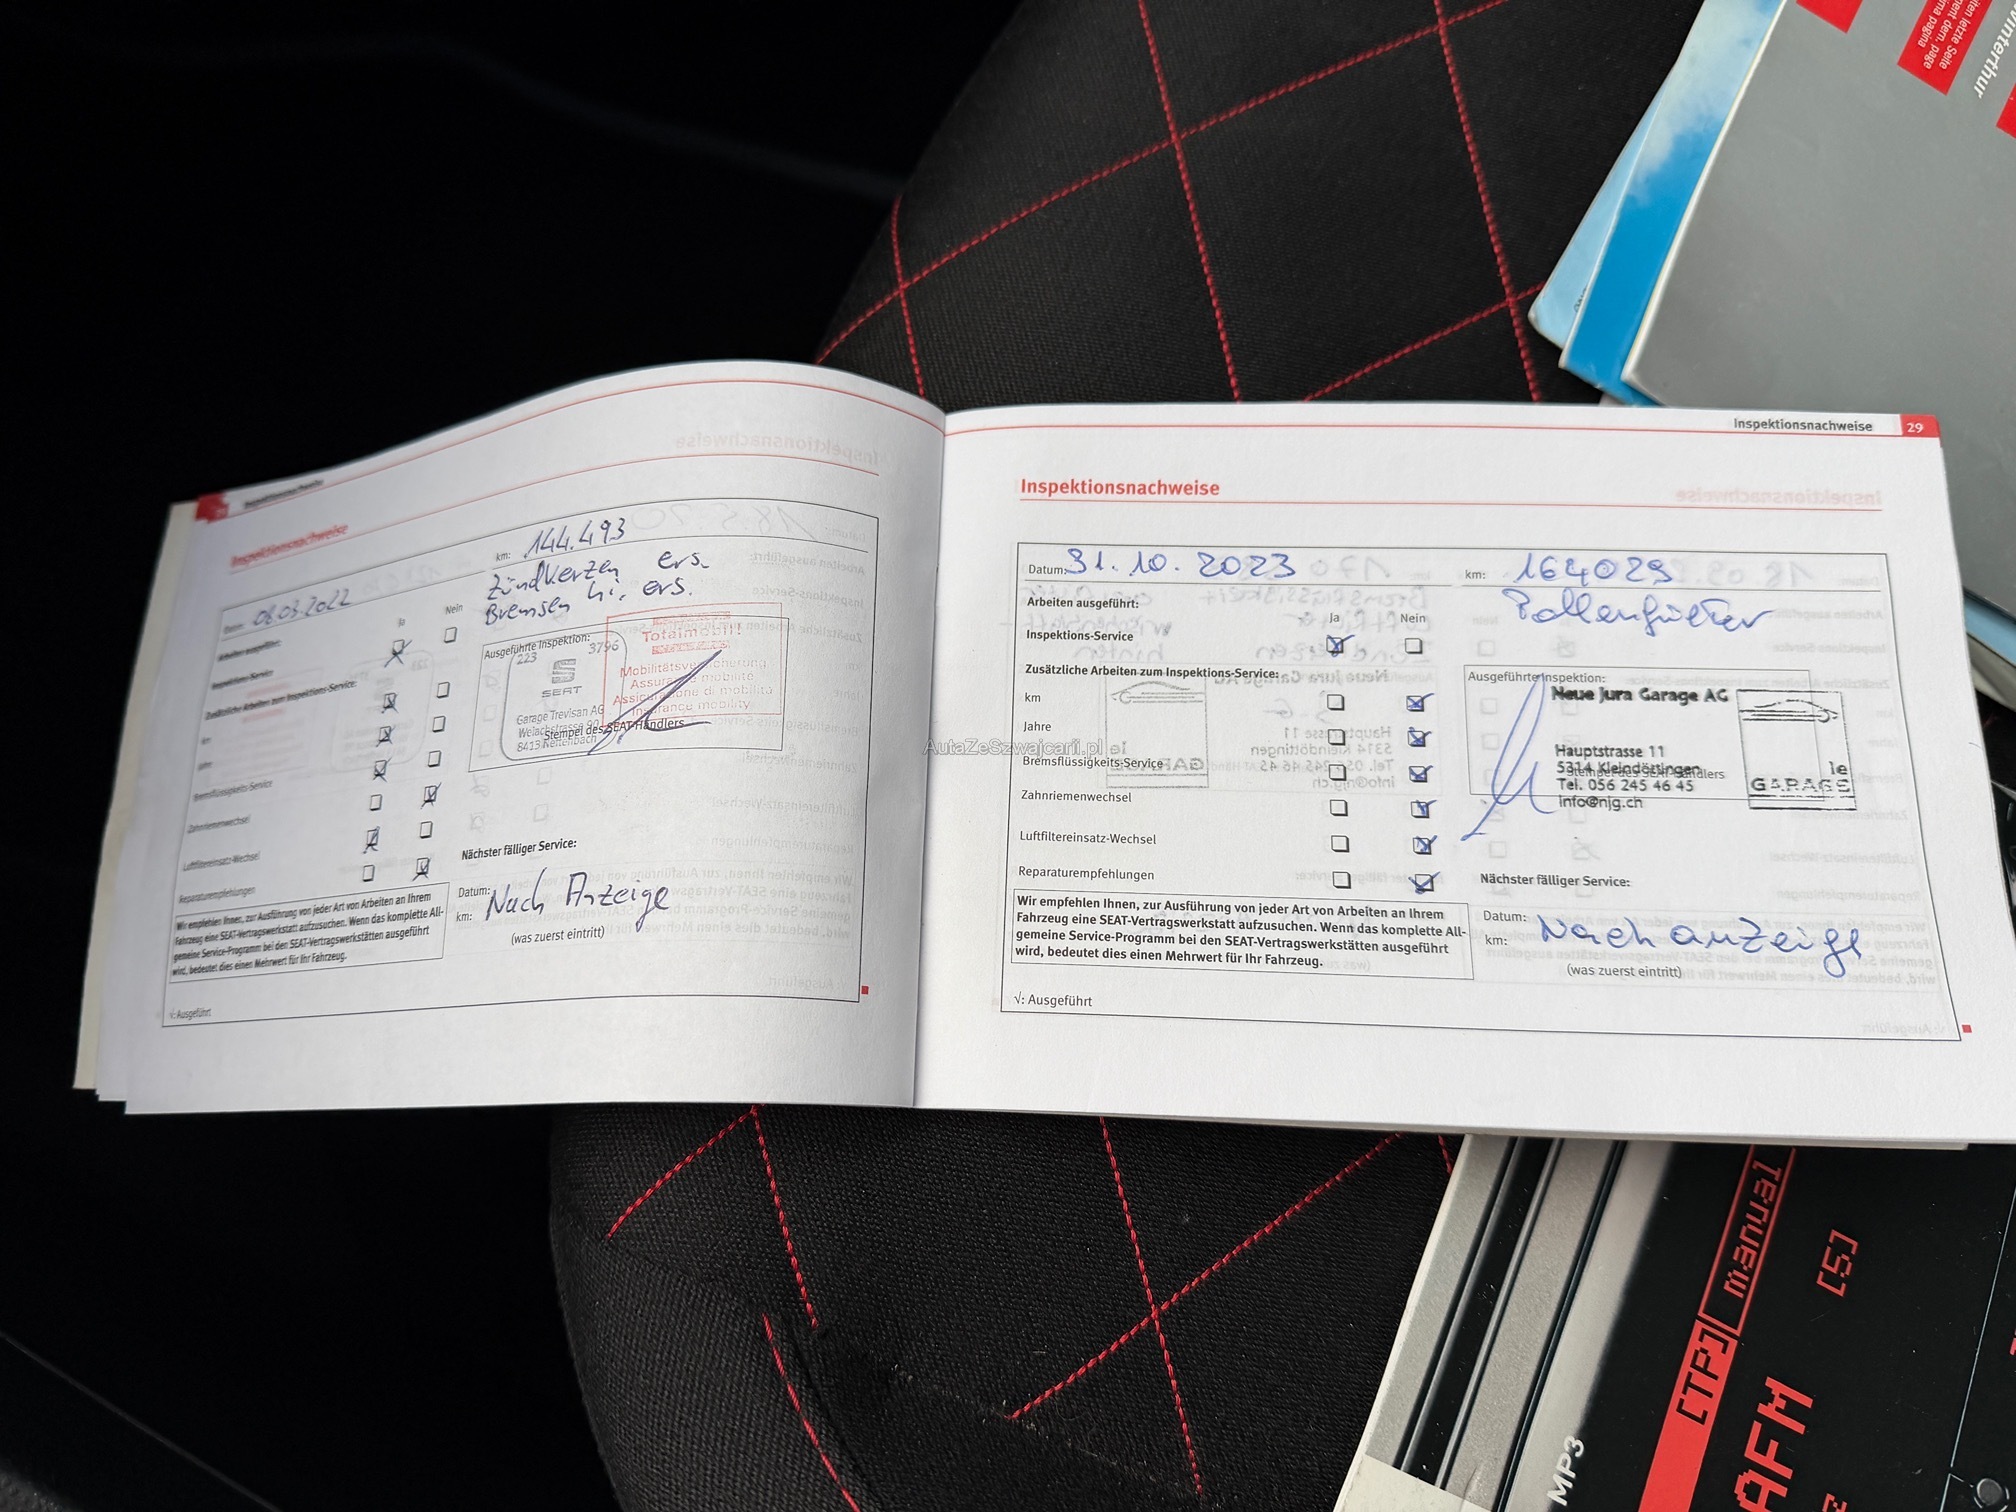 Inspektionsnachweise
Inspektionsnachweise
08.03.2022
km: 144.493
Zündkerzen ers.
Bremsen hi. ers.
Arbeiten ausgeführt:
Ja
Nein
Inspektions-Service
Zusätzliche Arbeiten zum Inspektions-Service:
km
Jahre
Bremsflüssigkeits-Service
Zahnriemenwechsel
Luftfiltereinsatz-Wechsel
Reparaturempfehlungen
Ausgeführte Inspektion:
223
3796
SEAT
Garage Trevisan AG
Stempel des SEAT-Händlers
Totalmobil!
Mobilitätsversicherung
Assurance mobilité
Assicurazione di mobilità
Insurance mobility
Nächster fälliger Service:
Datum:
km:
Nach Anzeige
(was zuerst eintritt)
Wir empfehlen Ihnen, zur Ausführung von jeder Art von Arbeiten an Ihrem
Fahrzeug eine SEAT-Vertragswerkstatt aufzusuchen. Wenn das komplette All-
gemeine Service-Programm bei den SEAT-Vertragswerkstätten ausgeführt
wird, bedeutet dies einen Mehrwert für Ihr Fahrzeug.
√: Ausgeführt
Inspektionsnachweise 29
Inspektionsnachweise
Datum: 31.10.2023
km: 164029
Pollenfilter
Arbeiten ausgeführt:
Ja
Nein
Inspektions-Service
Zusätzliche Arbeiten zum Inspektions-Service:
km
Jahre
Bremsflüssigkeits-Service
Zahnriemenwechsel
Luftfiltereinsatz-Wechsel
Reparaturempfehlungen
Ausgeführte Inspektion:
Neue Jura Garage AG
Hauptstrasse 11
5314 Kleindöttingen
Stempel des SEAT-Händlers
Tel. 056 245 46 45
info@njg.ch
le
GARAGE
Nächster fälliger Service:
Datum:
km:
Nach anzeige
(was zuerst eintritt)
Wir empfehlen Ihnen, zur Ausführung von jeder Art von Arbeiten an Ihrem
Fahrzeug eine SEAT-Vertragswerkstatt aufzusuchen. Wenn das komplette All-
gemeine Service-Programm bei den SEAT-Vertragswerkstätten ausgeführt
wird, bedeutet dies einen Mehrwert für Ihr Fahrzeug.
√: Ausgeführt
AutaZeSzwajcarii.pl
winterthur
iten letzte Seite
ment dern. page
ima pagina
[TP] manual
[S]
AFM
MP3